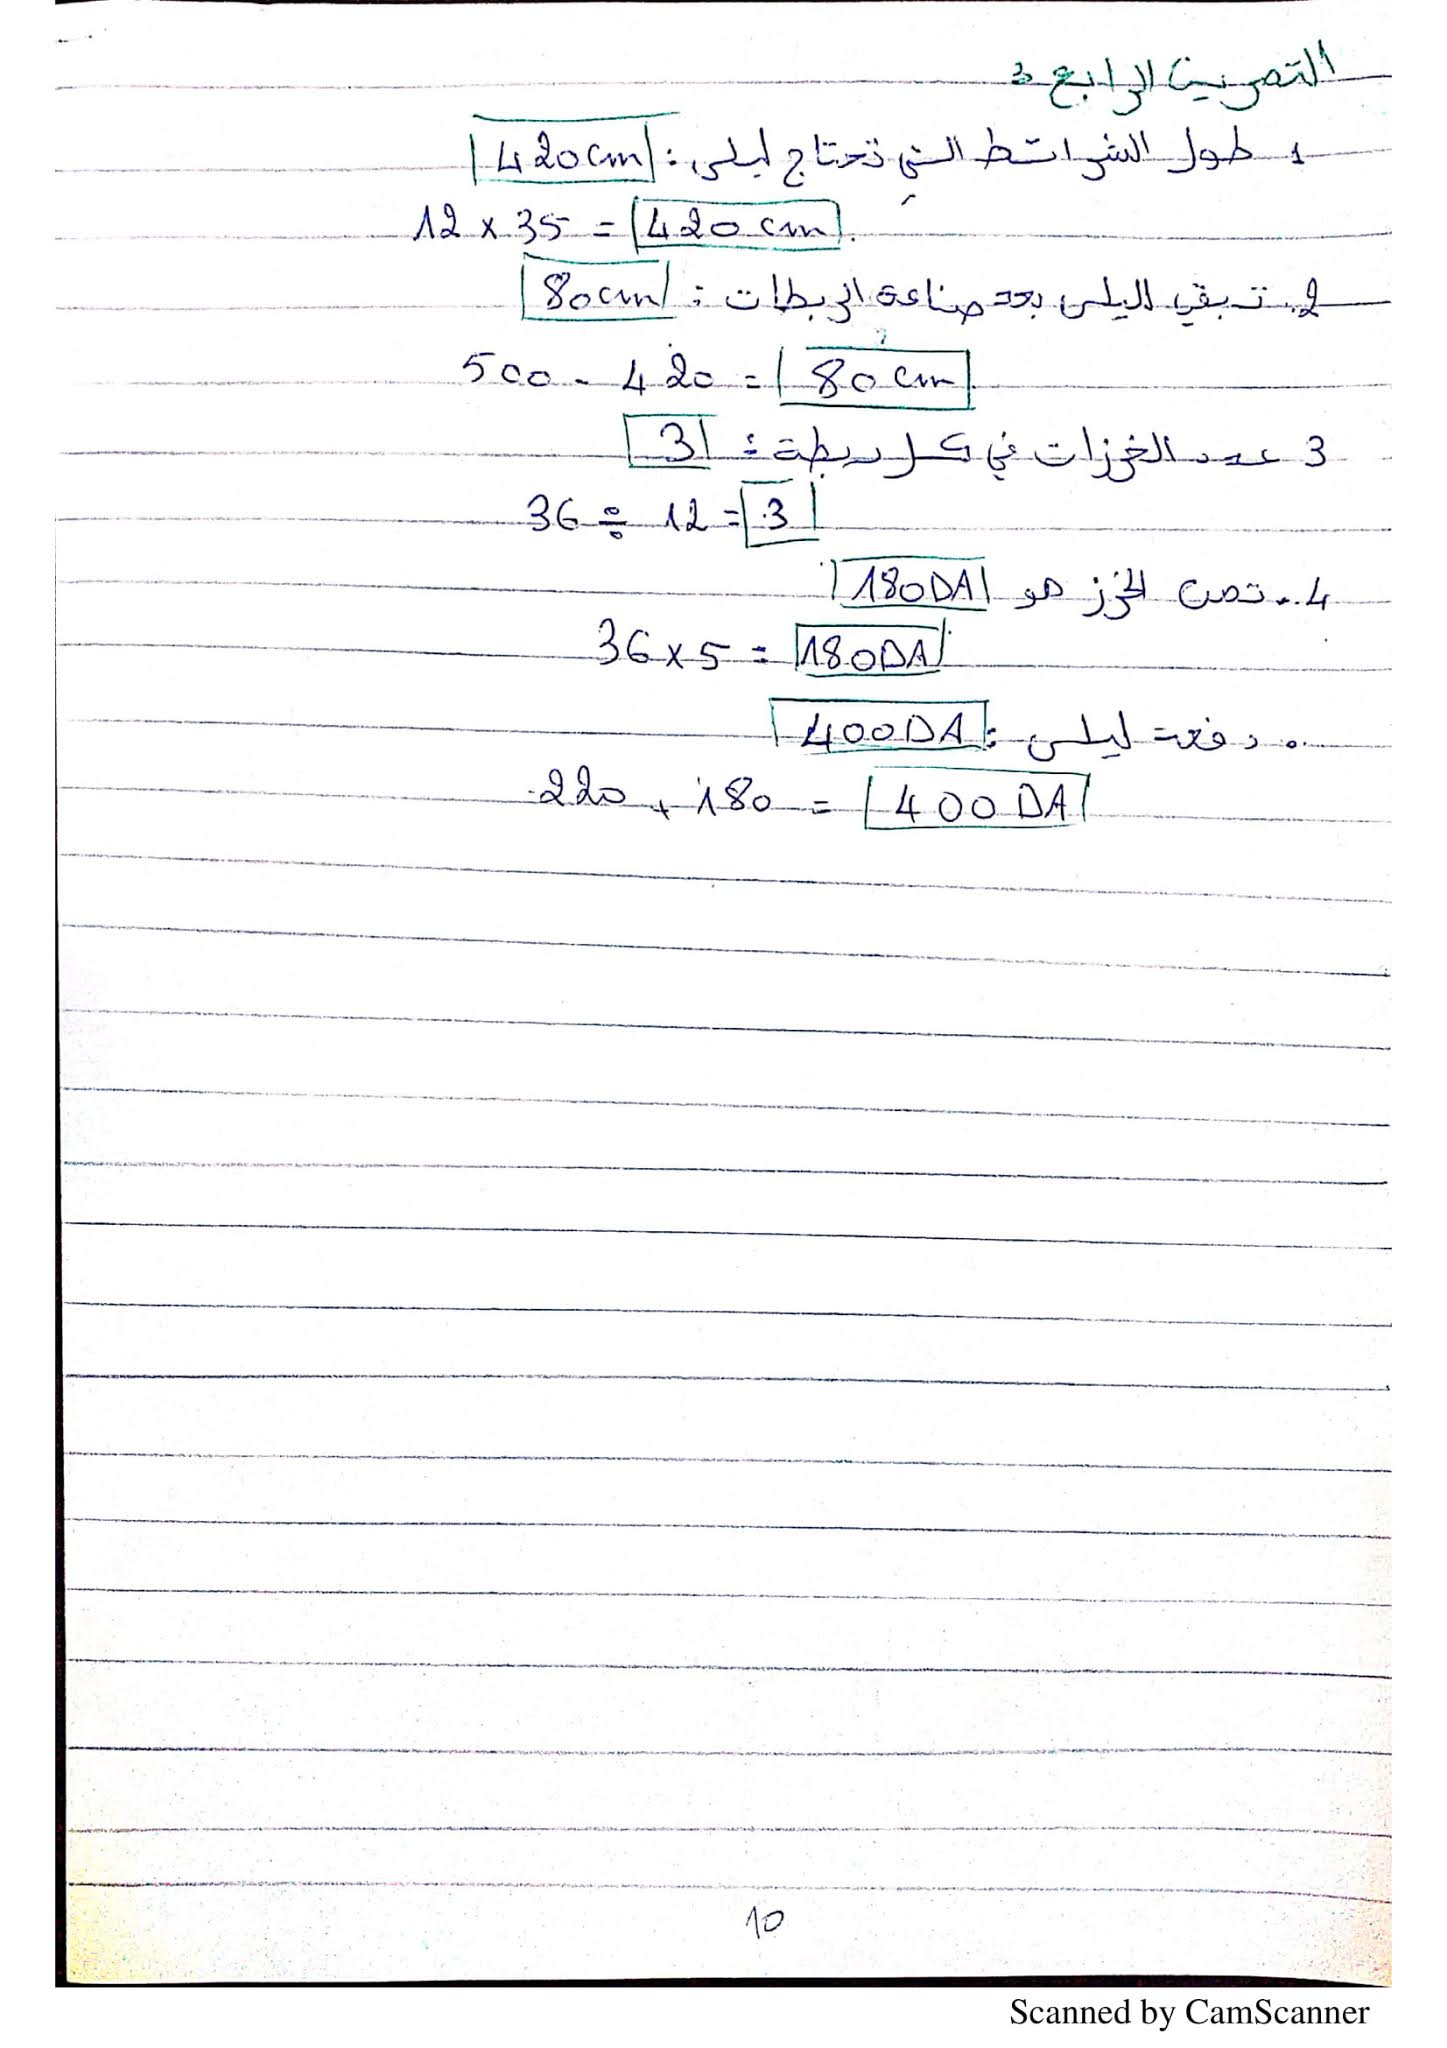 التمرين الرابع :
1 طول الشرائط التي تحتاج ليلى : 420cm
12 x 35 = 420 cm.
2. تبقى لليلى بعد صناعة الربطات : 80cm
500 - 420 = 80 cm
3 عدد الخرزات في كل ربطة : 3
36 ÷ 12 = 3
4. ثمن الخرز هو 180DA
36 x 5 = 180DA
. دفعت ليلى : 400DA
220 + 180 = 400 DA
10
Scanned by CamScanner